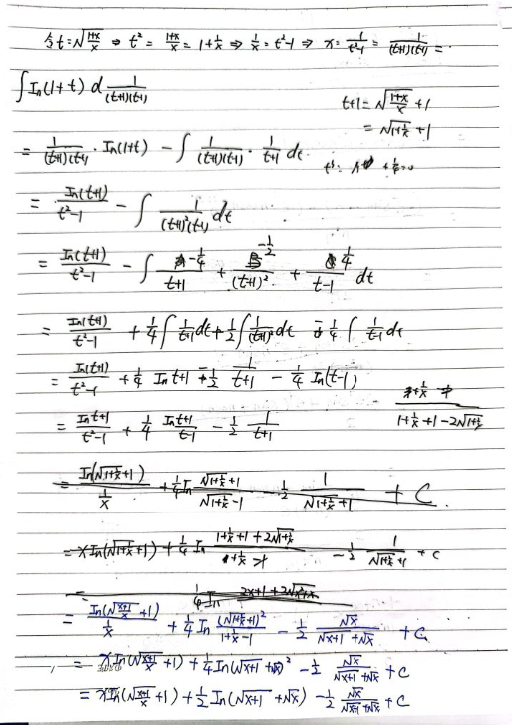 令 t=√((1+x)/x) ⇒ t² = (1+x)/x = 1+1/x ⇒ 1/x = t²-1 ⇒ x = 1/(t²-1) = 1/((t+1)(t-1))
∫ In(1+t) d 1/((t+1)(t-1))
t+1 = √((1+x)/x) +1
= √(1+1/x) +1
= 1/((t+1)(t-1)) · In(1+t) - ∫ 1/((t+1)(t-1)) · 1/(t+1) dt
= In(t+1)/(t²-1) - ∫ 1/((t+1)²(t-1)) dt
= In(t+1)/(t²-1) - ∫ (-1/4)/(t+1) + (-1/2)/(t+1)² + (1/4)/(t-1) dt
= In(t+1)/(t²-1) + 1/4 ∫ 1/(t+1) dt + 1/2 ∫ 1/(t+1)² dt - 1/4 ∫ 1/(t-1) dt
= In(t+1)/(t²-1) + 1/4 In t+1 - 1/2 1/(t+1) - 1/4 In(t-1)
= In t+1/(t²-1) + 1/4 In t+1/(t-1) - 1/2 1/(t+1)
1+1/x+1-2√(1+1/x)
= In(√(1+1/x)+1)/(1/x) + 1/4 In (√(1+1/x)+1)/(√(1+1/x)-1) - 1/2 1/(√(1+1/x)+1) + C
= xIn(√(1+1/x)+1) + 1/4 In (1+1/x+1+2√(1+1/x))/(1+1/x-1) - 1/2 1/(√(1+1/x)+1) + c
= In(√((x+1)/x)+1)/(1/x) + 1/4 In (√(1+1/x)+1)²/(1+1/x-1) - 1/2 √x/(√(x+1)+√x) + C
= xIn(√((x+1)/x)+1) + 1/4 In(√(x+1)+√x)² - 1/2 √x/(√(x+1)+√x) + C
= xIn(√((x+1)/x)+1) + 1/2 In(√(x+1)+√x) - 1/2 √x/(√(x+1)+√x) + C